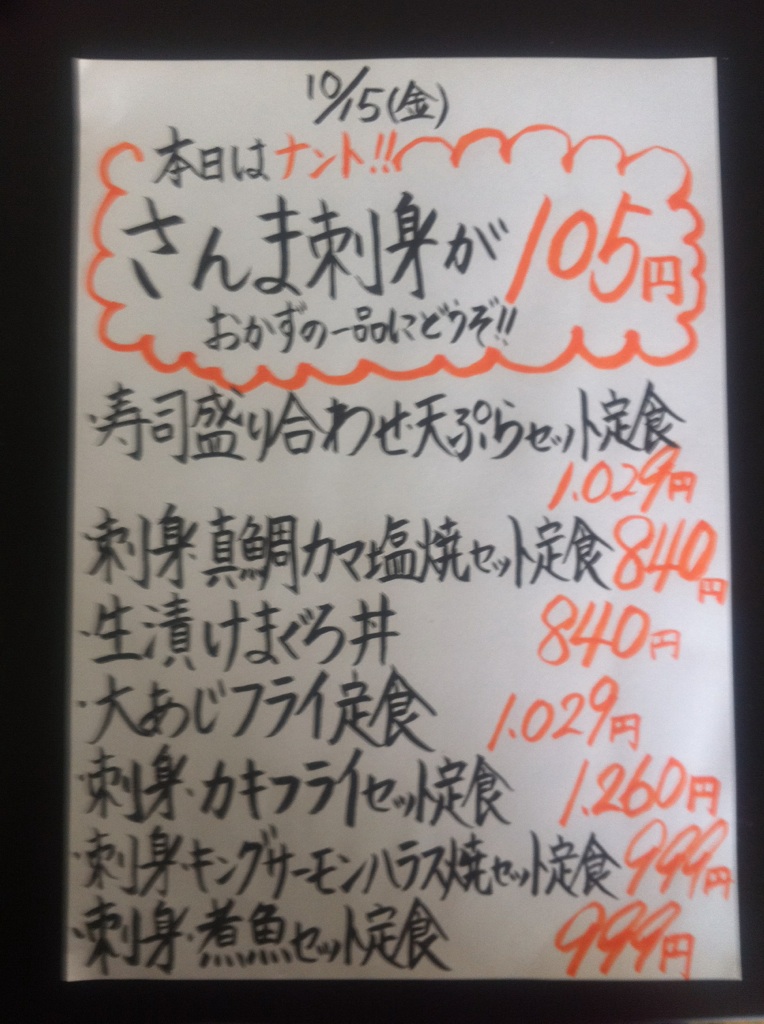 10/15(金)
本日はナント!!
さんま刺身が105円
おかずの一品にどうぞ!!
・寿司盛り合わせ・天ぷらセット定食
1.029円
・刺身・真鯛カマ塩焼セット定食840円
・生漬けまぐろ丼 840円
・大あじフライ定食 1.029円
・刺身・カキフライセット定食 1.260円
・刺身・キングサーモンハラス焼セット定食999円
・刺身・煮魚セット定食 999円